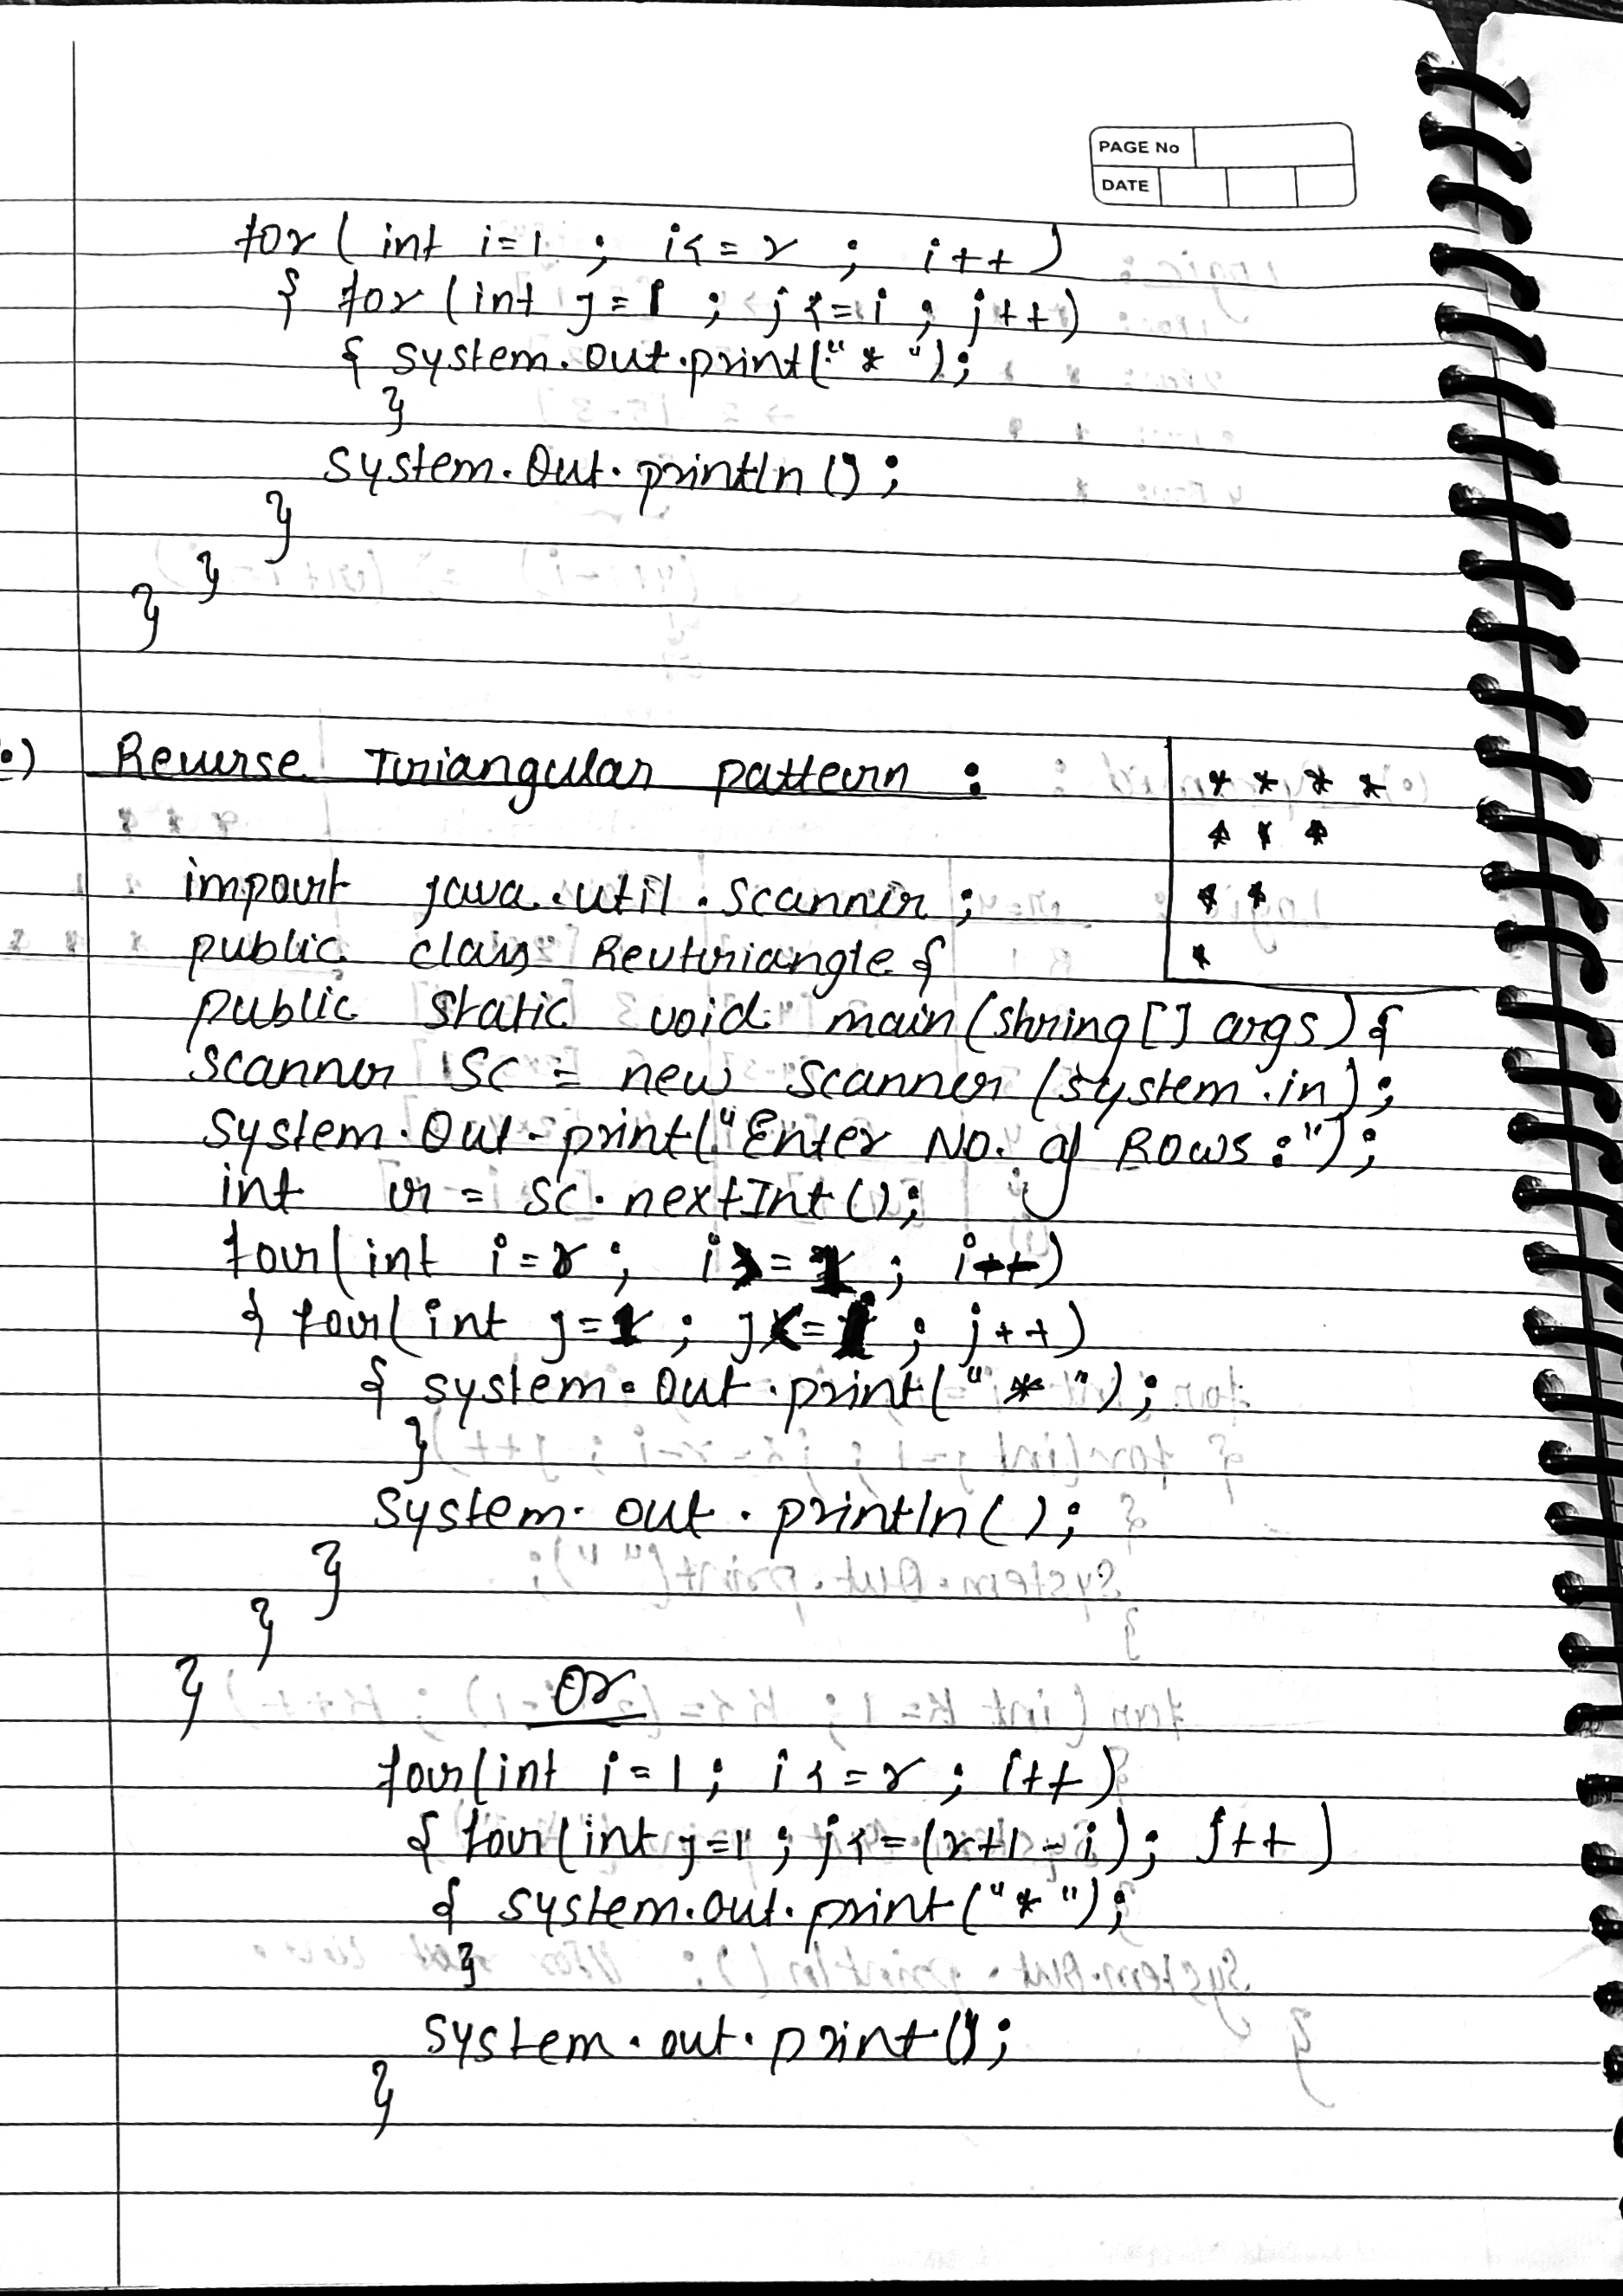 PAGE No
DATE
for ( int i=1 ; i<= r ; i++ )
{ for (int j=1 ; j<=i ; j++)
{ system.out.print("* ");
}
system.out.println();
}
}
}
Reverse Triangular pattern :
* * * *
* * *
* *
*
import java.util.scanner;
public class Revtriangle {
public static void main(string[] args) {
scanner sc = new scanner (system.in);
system.out.print("Enter No. of Rows:");
int r = sc.nextInt();
for(int i=r; i>=1; i++)
{ for(int j=1; j<=i; j++)
{ system.out.print("* ");
}
system.out.println();
}
}
}
or
for(int i=1; i<=r; i++)
{ for(int j=1; j<=(r+1-i); j++)
{ system.out.print("* ");
}
system.out.print();
}